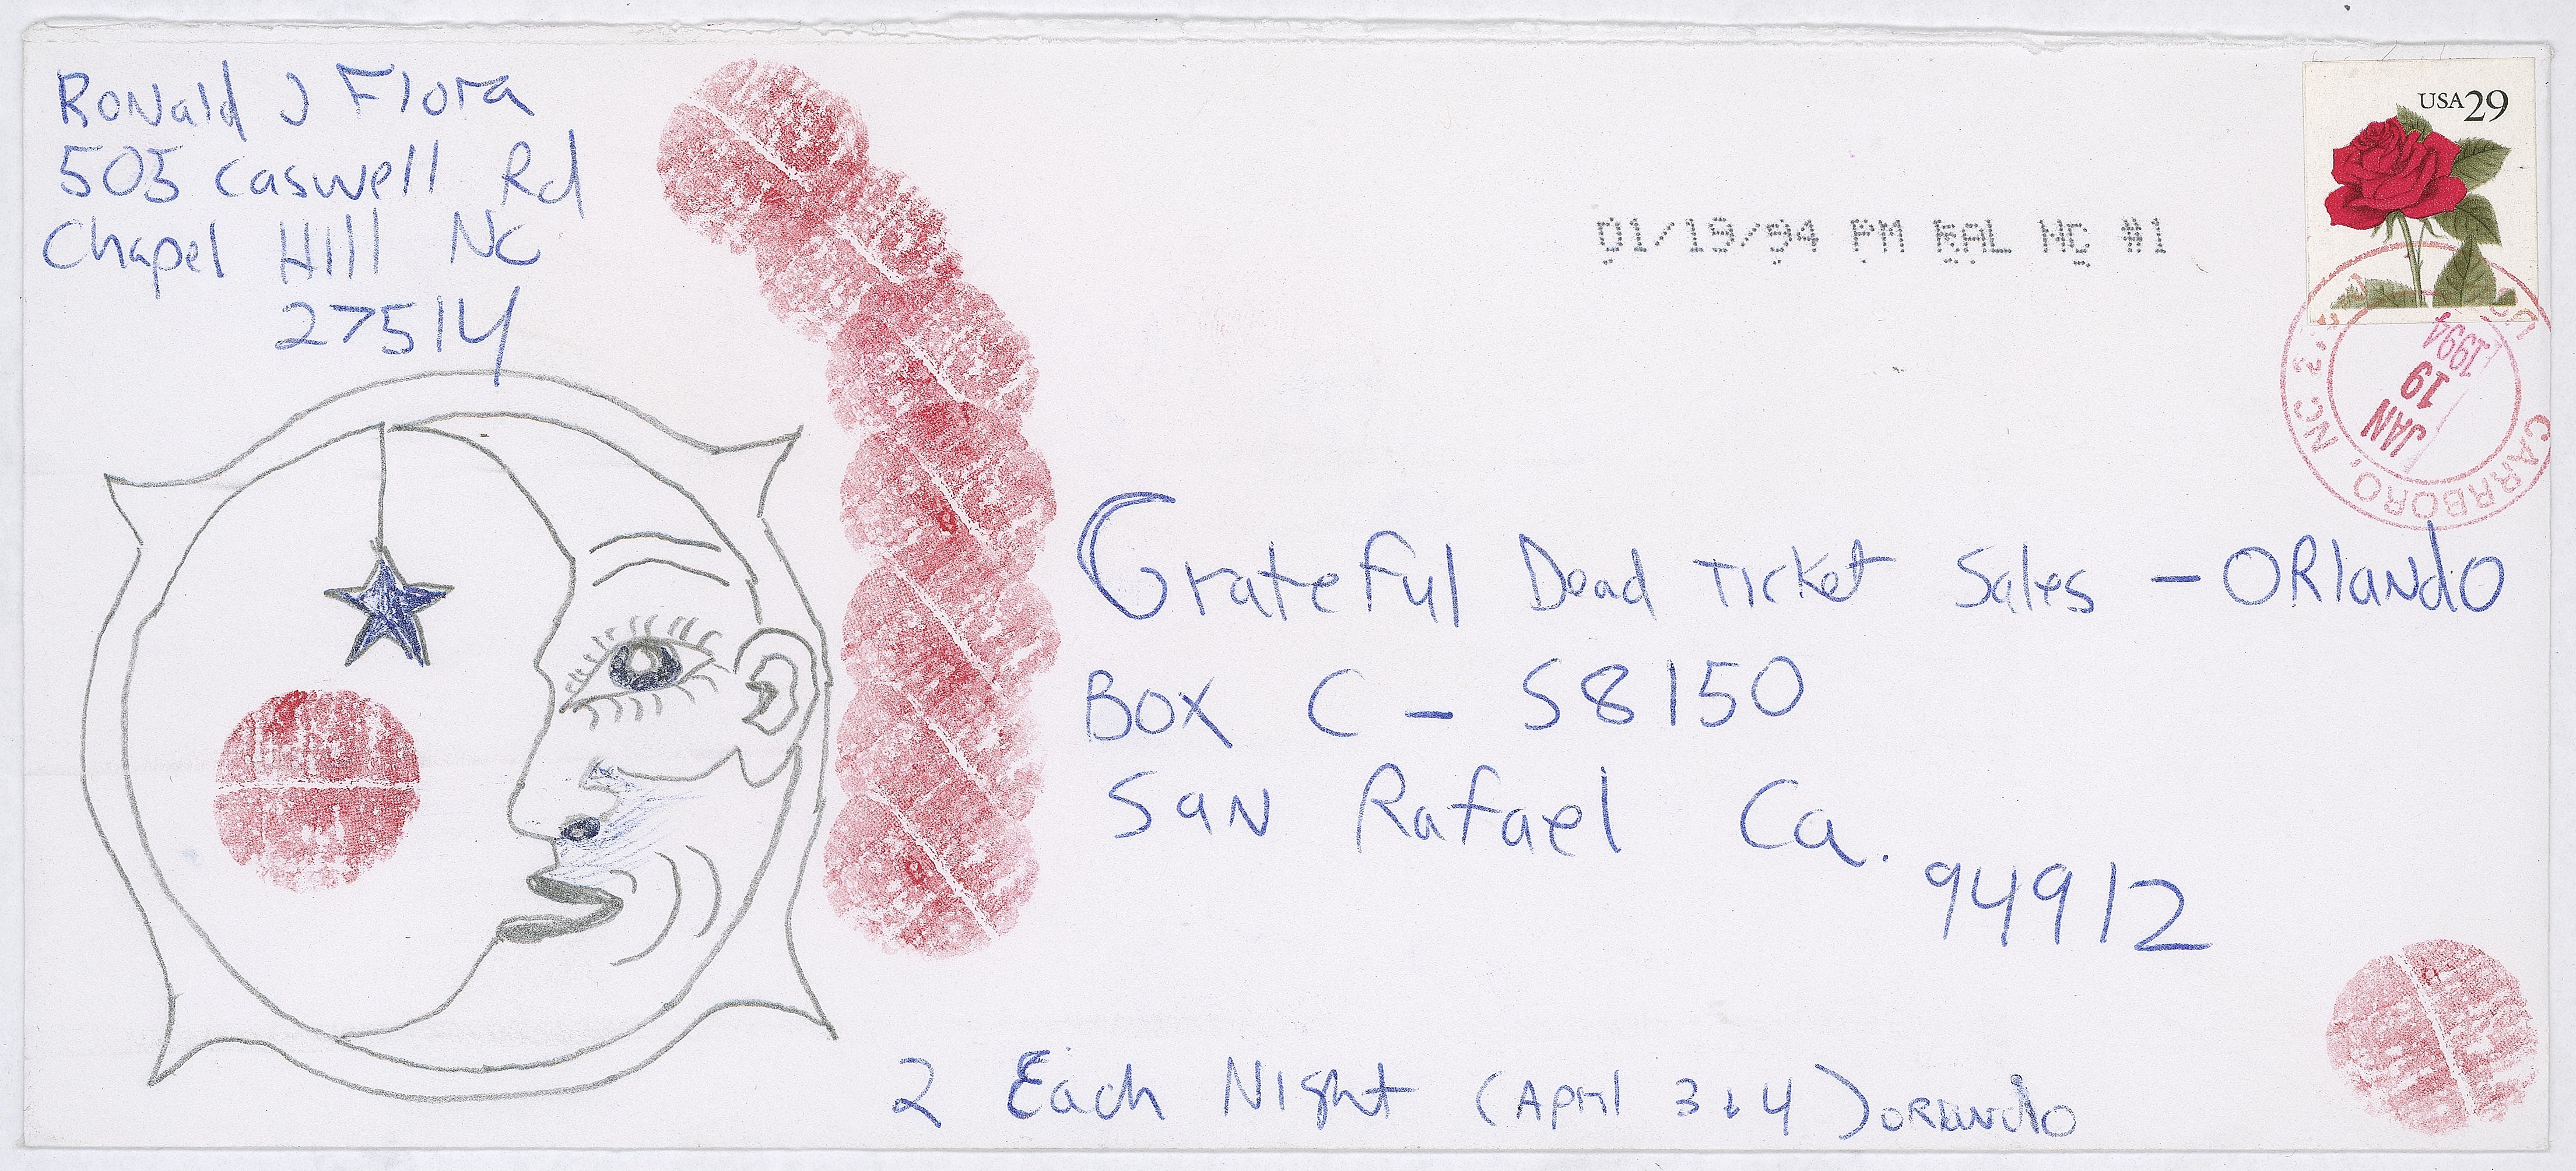 Ronald J Flora
505 Caswell Rd
Chapel Hill NC
27514
USA 29
01/19/94 PM RAL NC #1
CARRBORO, NC
JAN
19
1994
Grateful Dead Ticket Sales - ORlando
Box C - S8150
San Rafael Ca.
94912
2 Each Night (April 3 & 4) ORLANdo